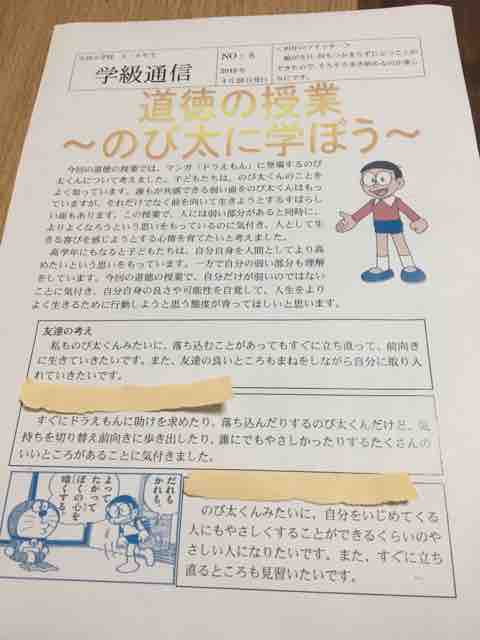 学級通信
NO:8
道徳の授業
～のび太に学ぼう～
今回の道徳の授業では、マンガ「ドラえもん」に登場するのび
太くんについて考えました。子どもたちは、のび太くんのことを
よく知っています。誰もが共感できる弱い面をのび太くんはもっ
ていますが、それだけでなく前を向いて生きようとするすばらし
い面もあります。この授業で、人には弱い部分があると同時に、
よりよくなろうという思いをもっているのに気付き、人として生
きる喜びを感じようとする心情を育てたいと考えました。
高学年にもなると子どもたちは、自分自身を人間としてより高
めたいという思いをもっています。一方で自分の弱い部分も理解
をしています。今回の道徳の授業で、自分だけが弱いのではない
ことに気付き、自分自身の良さや可能性を自覚して、人生をより
よく生きるために行動しようと思う態度が育ってほしいと思います。
友達の考え
私ものび太くんみたいに、落ち込むことがあってもすぐに立ち直って、前向き
に生きていきたいです。また、友達の良いところもまねをしながら自分に取り入
れていきたいです。
すぐにドラえもんに助けを求めたり、落ち込んだりするのび太くんだけど、気
持ちを切り替え前向きに歩き出したり、誰にでもやさしかったりするたくさんの
いいところがあることに気付きました。
だれも
かれも、
よって
たかって
ぼくの心を
暗くする。
のび太くんみたいに、自分をいじめてくる
人にもやさしくすることができるくらいのや
さしい人になりたいです。また、すぐに立ち
直るところも見習いたいです。